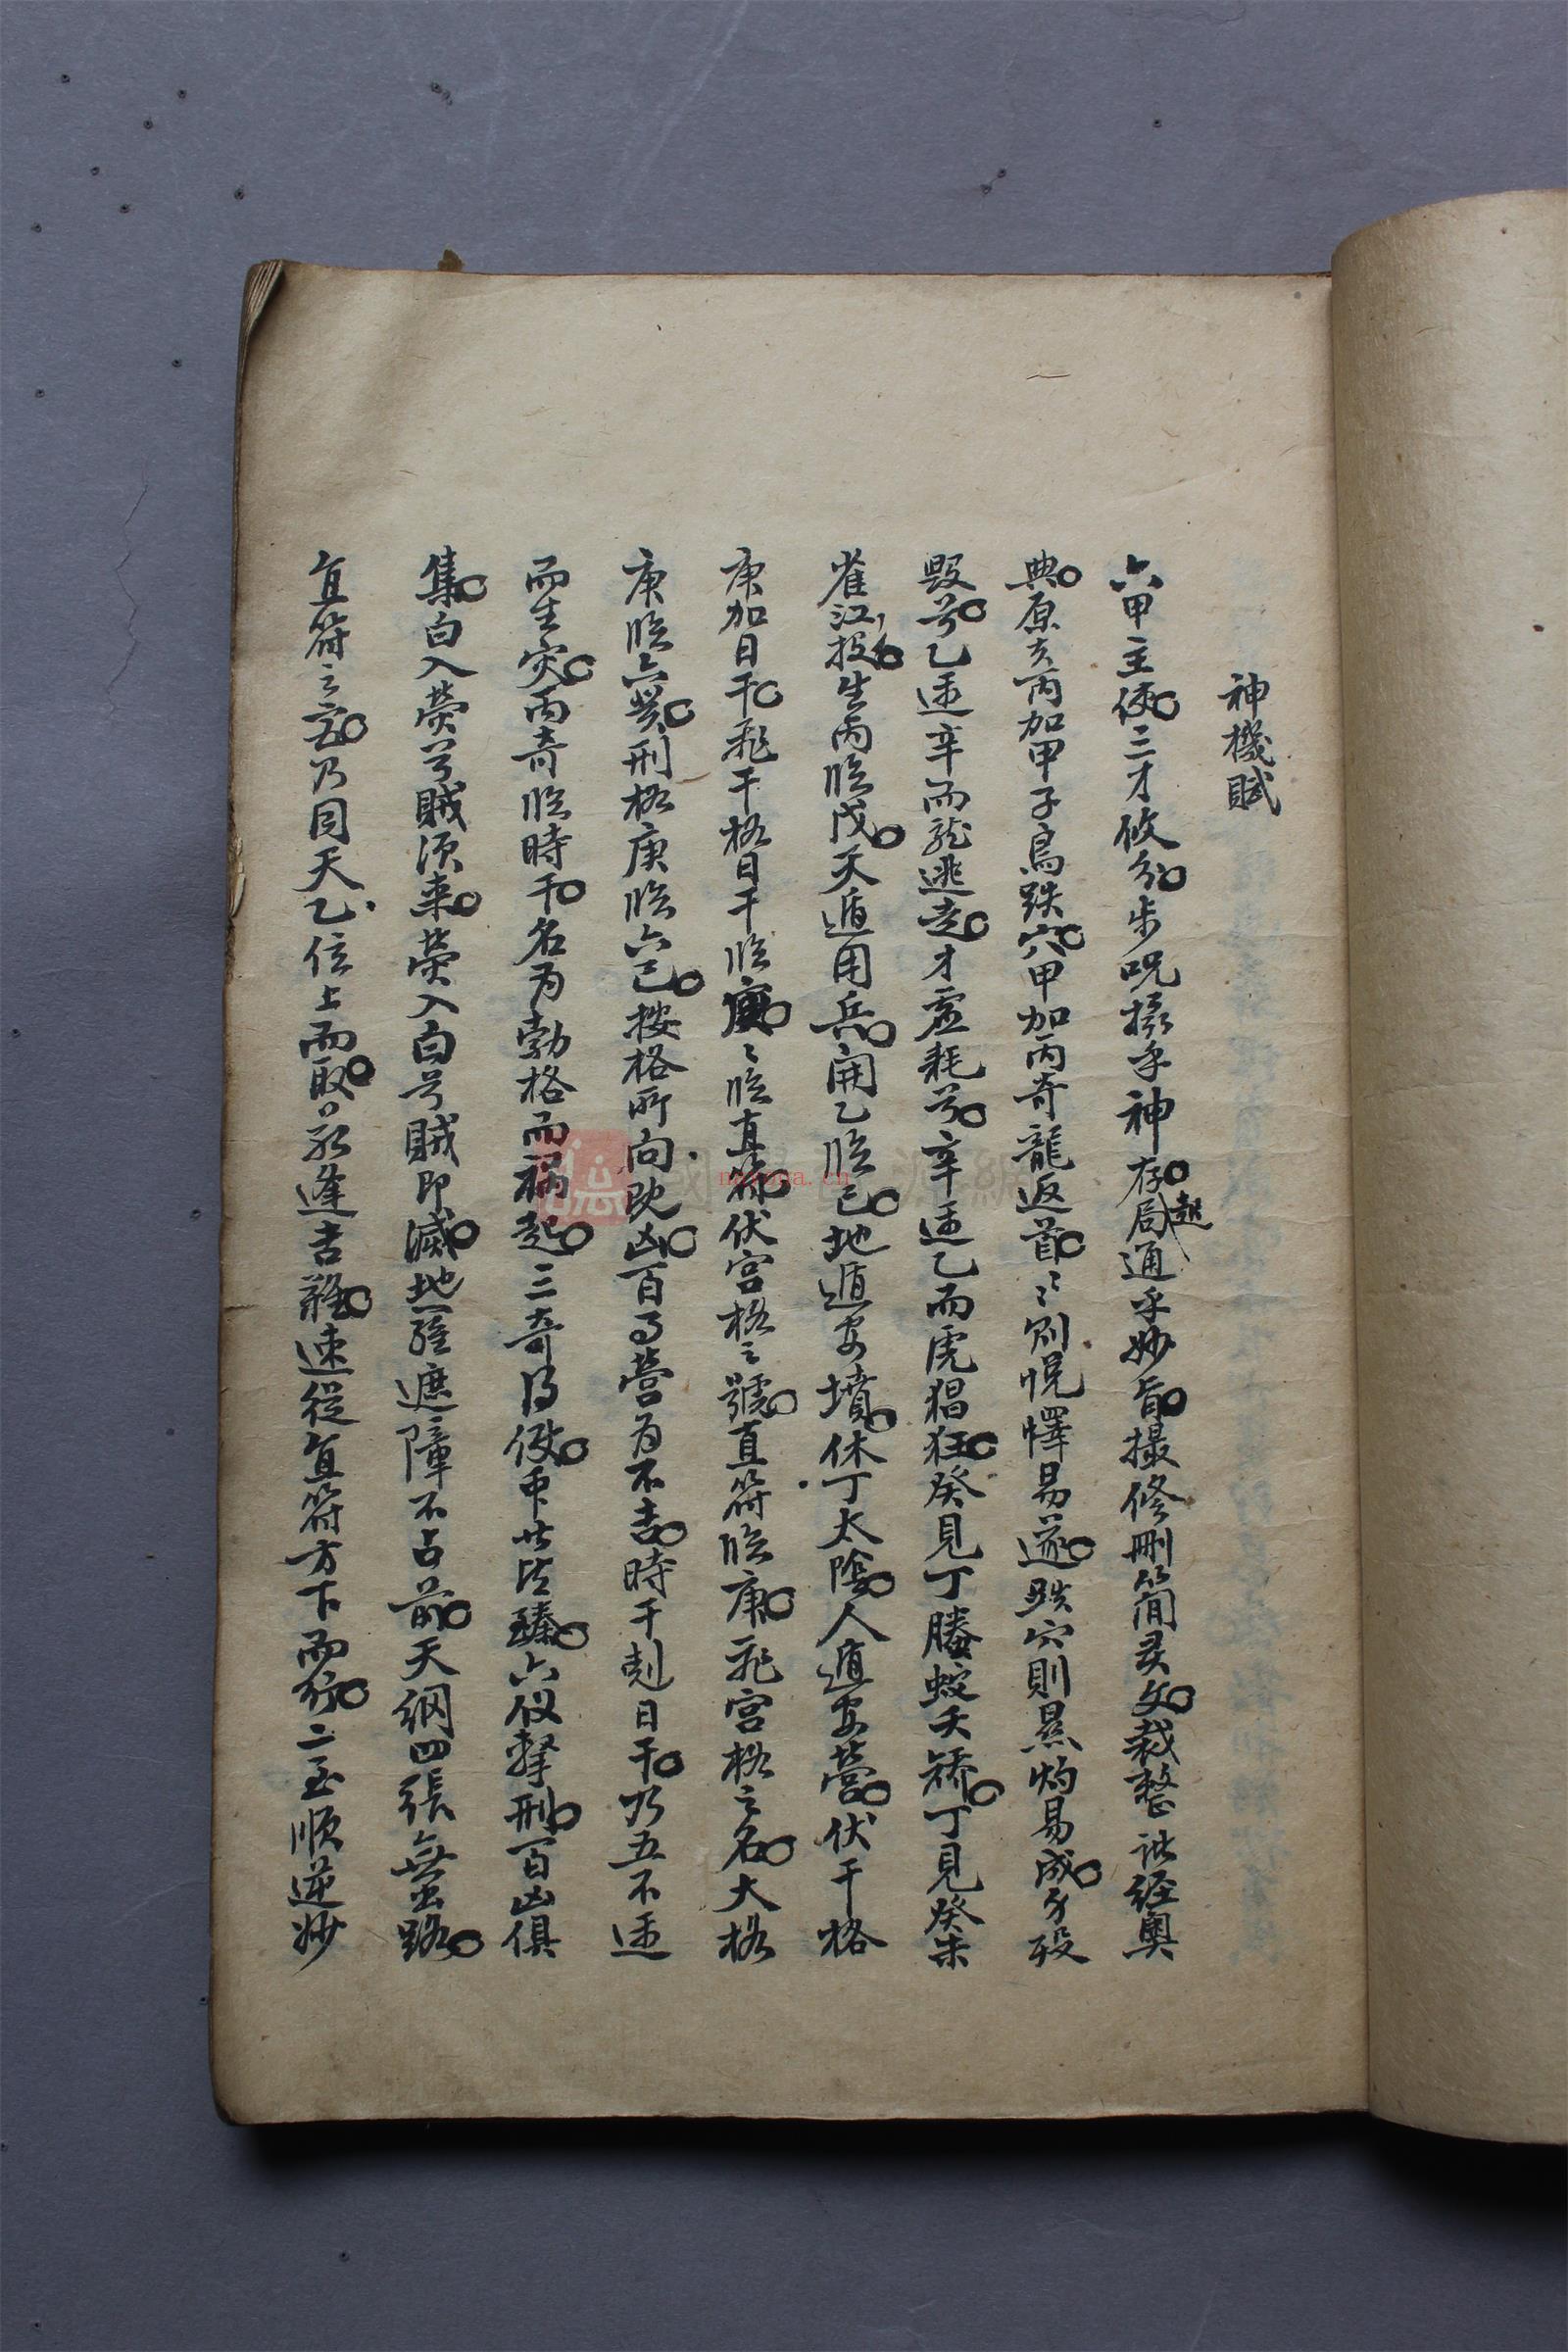 神機賦
六甲主使三才攸分步呪攝乎神存局起通乎妙旨撮修刪簡灵文裁整訛經奧
典原夫丙加甲子鳥跌穴甲加丙奇龍返首〻則悅懌易遂跌穴則㬎灼易成身殁
毀兮乙逢辛而龍逃走才虛耗兮辛逢乙而虎猖狂癸見丁螣蛇夭矯丁見癸朱
雀江投生丙臨戊天遁用兵開乙臨己地遁安墳休丁太陰人遁安營伏干格
庚加日干飛干格日干臨庚〻臨直符伏宫格之號直符臨庚飛宫格之名大格
庚臨六癸刑格庚臨六己按格所向既凶百事營为不吉時干尅日干乃五不逢
而生灾丙奇臨時干名为勃格而禍起三奇得使衆皆臻六仪擊刑百凶俱
集白入熒兮賊須来熒入白兮賊即滅地羅遮障不占前天網四張無路
直符之宫乃同天乙位上而取若逢吉難速從直符方下而行二至順逆妙
國學資源網
nayona.cn